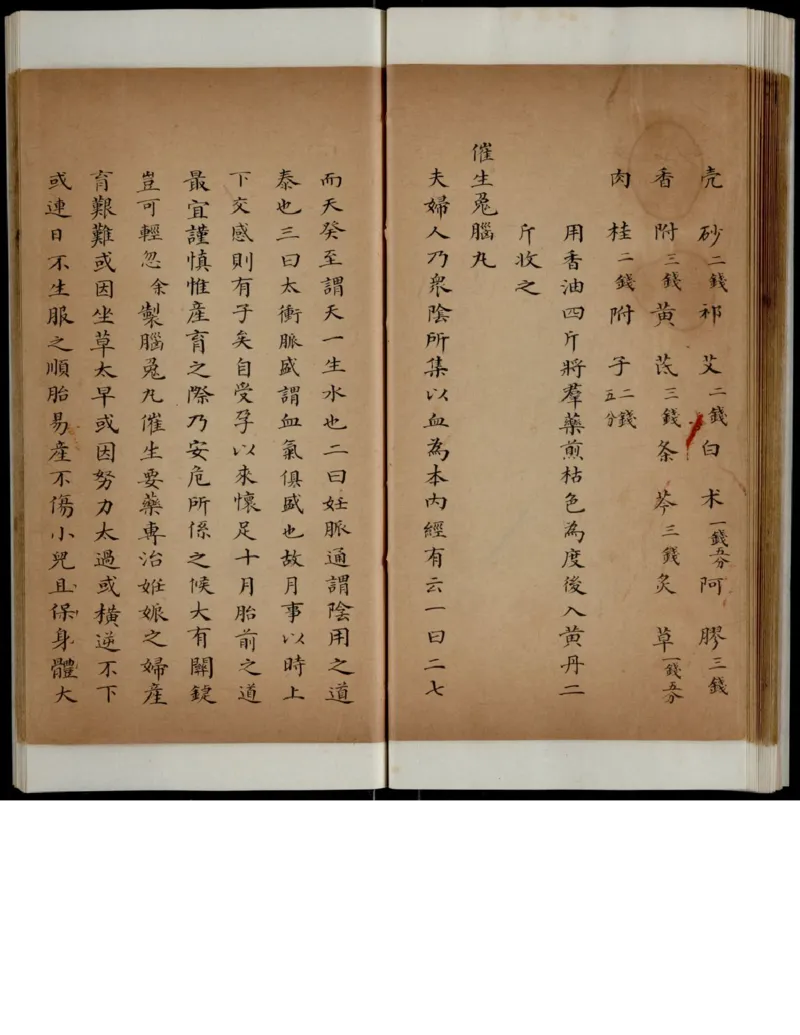 壳砂二錢祁艾二錢白术一錢五分阿膠三錢
香附三錢黃芪三錢条芩三錢炙草一錢五分
肉桂二錢附子二錢五分
用香油四斤將羣藥煎枯色為度後入黃丹二
斤收之
催生兔腦丸
夫婦人乃衆陰所集以血為本內經有云一曰二七
而天癸至謂天一生水也二曰妊脈通謂陰用之道
泰也三曰太衝脈盛謂血氣俱盛也故月事以時上
下交感則有子矣自受孕以來懷足十月胎前之道
最宜謹慎惟産育之際乃安危所係之候大有關鍵
豈可輕忽余製腦兔丸催生要藥專治姙娠之婦産
育艱難或因坐草太早或因努力太過或橫逆不下
或連日不生服之順胎易産不傷小兒且保身體大